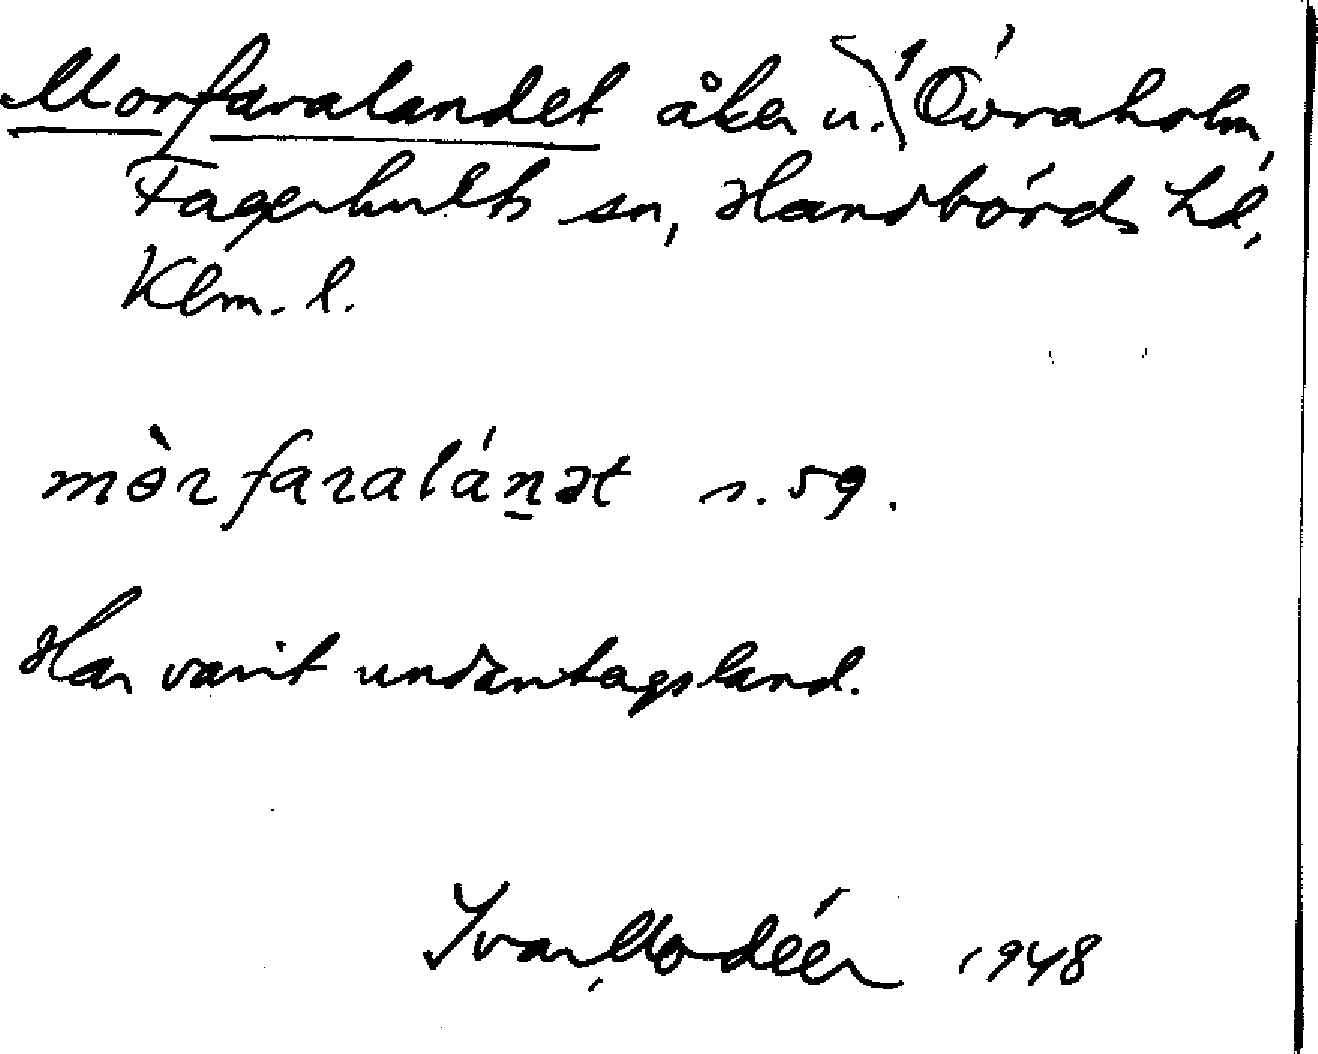 Morfaralandet åker u. 1 Övraholm,
Fagerhults sn, Handbörds hd,
Klm. l.
mòrfaralánət s. 59.
Har varit undantagsland.
Ivar Modéer 1948